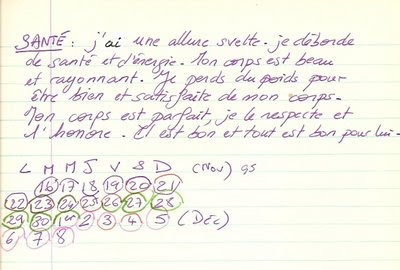 SANTÉ : j'ai une allure svelte. je déborde
de santé et d'énergie. Mon corps est beau
et rayonnant. Je perds du poids pour
être bien et satisfaite de mon corps.
Mon corps est parfait, je le respecte et
l'honore. Il est bon et tout est bon pour lui.
L M M J V S D (Nov) 95
16 17 18 19 20 21
22 23 24 25 26 27 28
29 30 1er 2 3 4 5 (DEC)
6 7 8